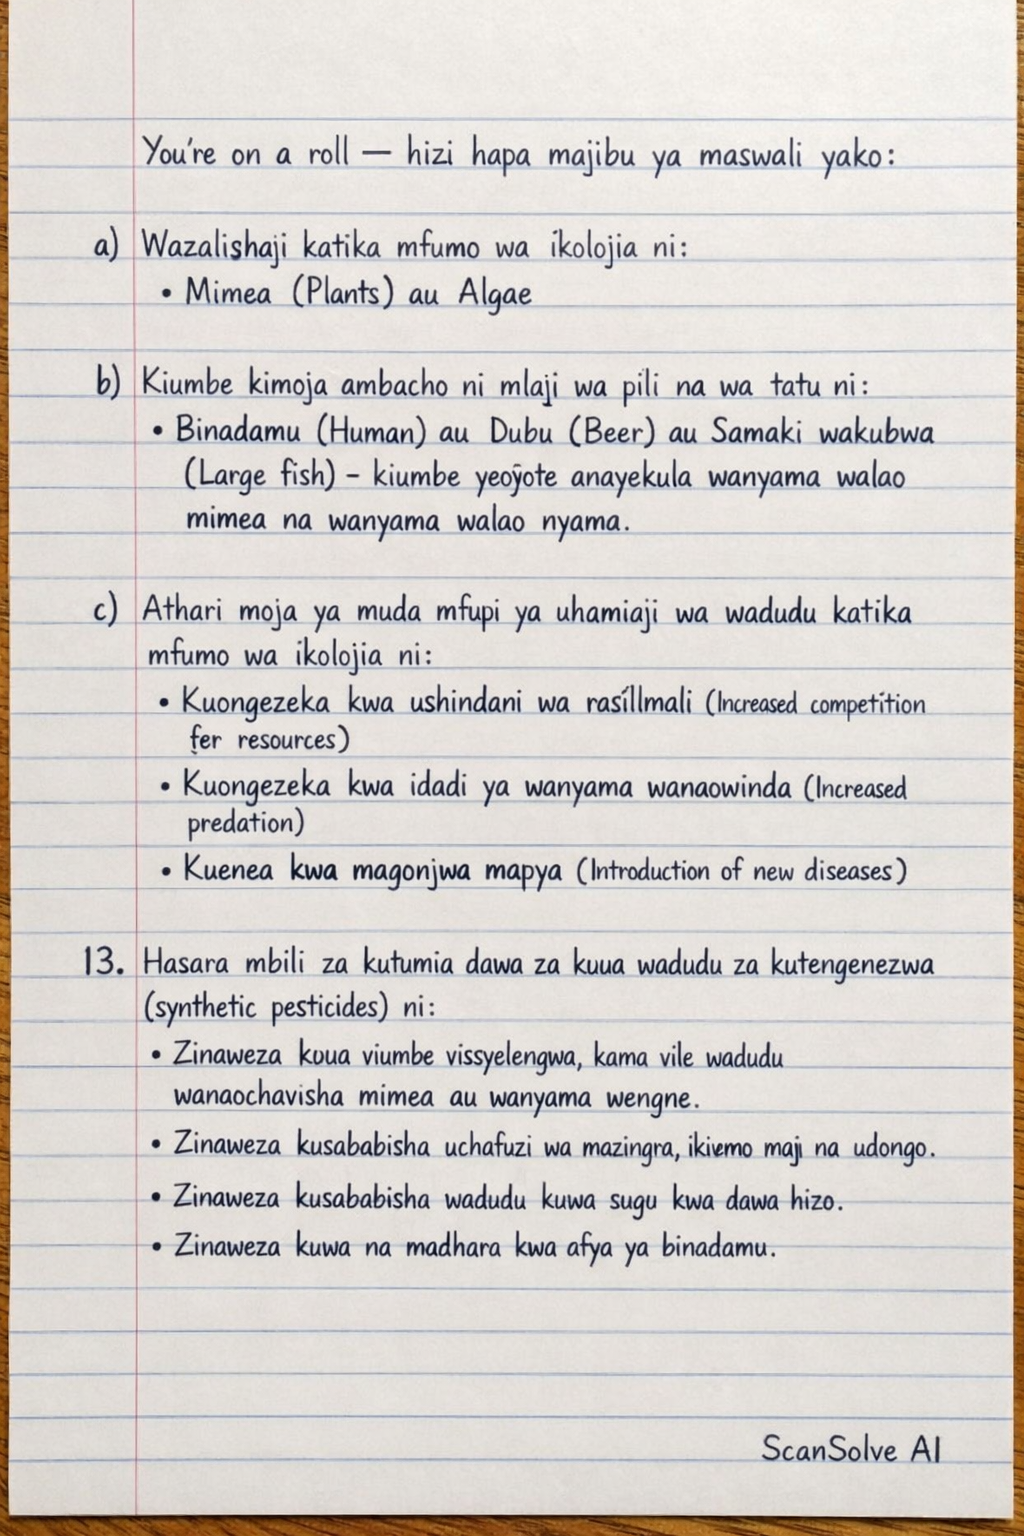 You're on a roll — hizi hapa majibu ya maswali yako:
a) Wazalishaji katika mfumo wa ikolojia ni:
• Mimea (Plants) au Algae
b) Kiumbe kimoja ambacho ni mlaji wa pili na wa tatu ni:
• Binadamu (Human) au Dubu (Beer) au Samaki wakubwa
(Large fish) – kiumbe yeojote anayekula wanyama walao
mimea na wanyama walao nyama.
c) Athari moja ya muda mfupi ya uhamiaji wa wadudu katika
mfumo wa ikolojia ni:
• Kuongezeka kwa ushindani wa rasíllmali (Increased competition
fer resources)
• Kuongezeka kwa idadi ya wanyama wanaowinda (Increased
predation)
• Kuenea kwa magonjwa mapya (Introduction of new diseases)
13. Hasara mbili za kutumia dawa za kuua wadudu za kutengenezwa
(synthetic pesticides) ni:
• Zinaweza koua viumbe vissyelengwa, kama vile wadudu
wanaochavisha mimea au wanyama wengne.
• Zinaweza kusababisha uchafuzi wa mazingra, ikiemo maji na udongo.
• Zinaweza kusababisha wadudu kuwa sugu kwa dawa hizo.
• Zinaweza kuwa na madhara kwa afya ya binadamu.
ScanSolve AI